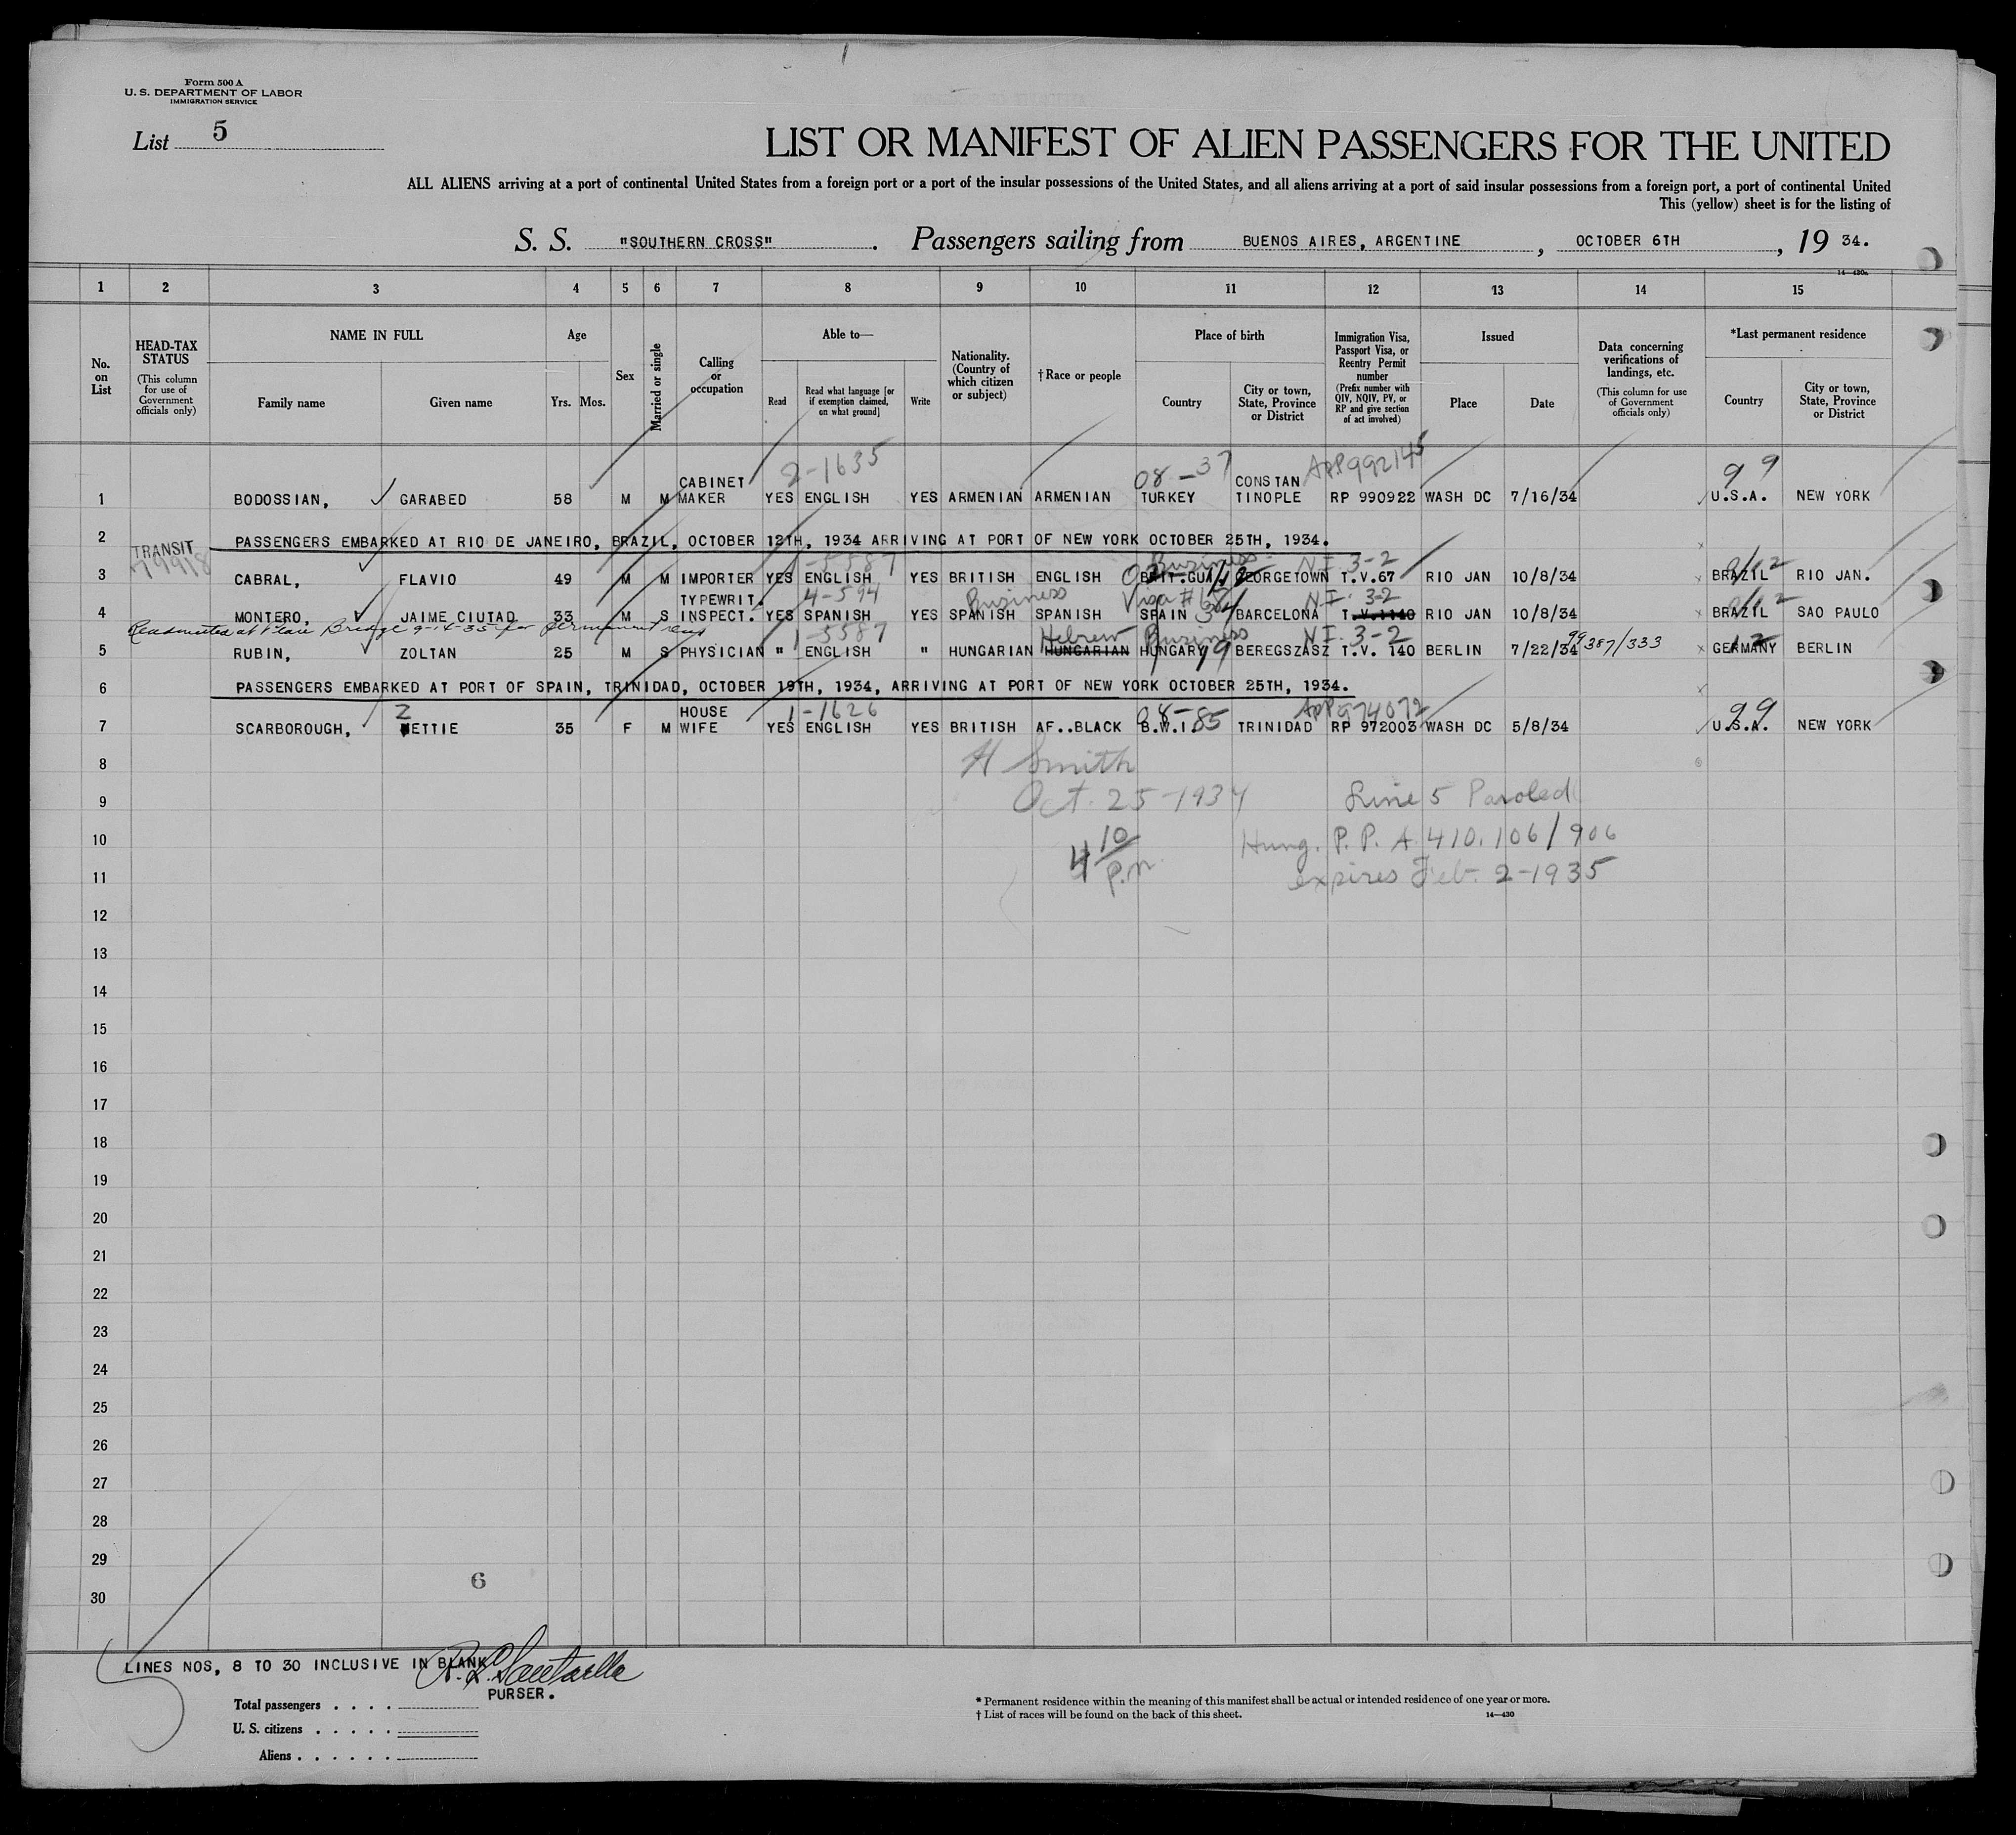 Form 500 A
U. S. DEPARTMENT OF LABOR
IMMIGRATION SERVICE
List 5
LIST OR MANIFEST OF ALIEN PASSENGERS FOR THE UNITED
ALL ALIENS arriving at a port of continental United States from a foreign port or a port of the insular possessions of the United States, and all aliens arriving at a port of said insular possessions from a foreign port, a port of continental United
This (yellow) sheet is for the listing of
S. S. "SOUTHERN CROSS". Passengers sailing from BUENOS AIRES, ARGENTINE, OCTOBER 6TH, 19 34.
14—430a
1 2 3 4 5 6 7 8 9 10 11 12 13 14 15
No. on List
HEAD-TAX STATUS (This column for use of Government officials only)
NAME IN FULL
Family name Given name
Age
Yrs. Mos.
Sex
Married or single
Calling or occupation
Able to—
Read Read what language [or if exemption claimed, on what ground] Write
Nationality. (Country of which citizen or subject)
† Race or people
Place of birth
Country City or town, State, Province or District
Immigration Visa, Passport Visa, or Reentry Permit number (Prefix number with QIV, NQIV, PV, or RP and give section of act involved)
Issued
Place Date
Data concerning verifications of landings, etc. (This column for use of Government officials only)
*Last permanent residence
Country City or town, State, Province or District
2-1635 08-37 APP 992145 99
1 BODOSSIAN, GARABED 58 M M CABINET MAKER YES ENGLISH YES ARMENIAN ARMENIAN TURKEY CONSTANTINOPLE RP 990922 WASH DC 7/16/34 U.S.A. NEW YORK
2 PASSENGERS EMBARKED AT RIO DE JANEIRO, BRAZIL, OCTOBER 12TH, 1934 ARRIVING AT PORT OF NEW YORK OCTOBER 25TH, 1934.
TRANSIT
Business N I 3-2
3 CABRAL, FLAVIO 49 M M IMPORTER YES ENGLISH YES BRITISH ENGLISH BRIT.GUA. GEORGETOWN T.V.67 RIO JAN 10/8/34 BRAZIL RIO JAN.
4-594 Business Visa #68 N I 3-2
4 MONTERO, JAIME CIUTAD 33 M S TYPEWRIT. INSPECT. YES SPANISH YES SPANISH SPANISH SPAIN BARCELONA T.V.1140 RIO JAN 10/8/34 BRAZIL SAO PAULO
Readmitted at Peace Bridge 9-14-35 for permanent res
1-5587 Hebrew Business N I 3-2 99387/333
5 RUBIN, ZOLTAN 25 M S PHYSICIAN " ENGLISH " HUNGARIAN HUNGARIAN HUNGARY 19 BEREGSZASZ T.V. 140 BERLIN 7/22/34 GERMANY BERLIN
6 PASSENGERS EMBARKED AT PORT OF SPAIN, TRINIDAD, OCTOBER 19TH, 1934, ARRIVING AT PORT OF NEW YORK OCTOBER 25TH, 1934.
Z 1-1626 08-85 APP 974072 99
7 SCARBOROUGH, ETTIE 35 F M HOUSE WIFE YES ENGLISH YES BRITISH AF..BLACK B.W.I. TRINIDAD RP 972003 WASH DC 5/8/34 U.S.A. NEW YORK
8 H Smith
9 Oct. 25-1934 Line 5 Paroled
10 4 10/P.M. Hung. P. P. A 410.106/906
11 expires Feb. 2-1935
12
13
14
15
16
17
18
19
20
21
22
23
24
25
26
27
28
29
6
30
LINES NOS, 8 TO 30 INCLUSIVE IN BLANK
PURSER.
Total passengers . . . .
U. S. citizens . . . . .
Aliens . . . . . .
* Permanent residence within the meaning of this manifest shall be actual or intended residence of one year or more.
† List of races will be found on the back of this sheet.
14—430